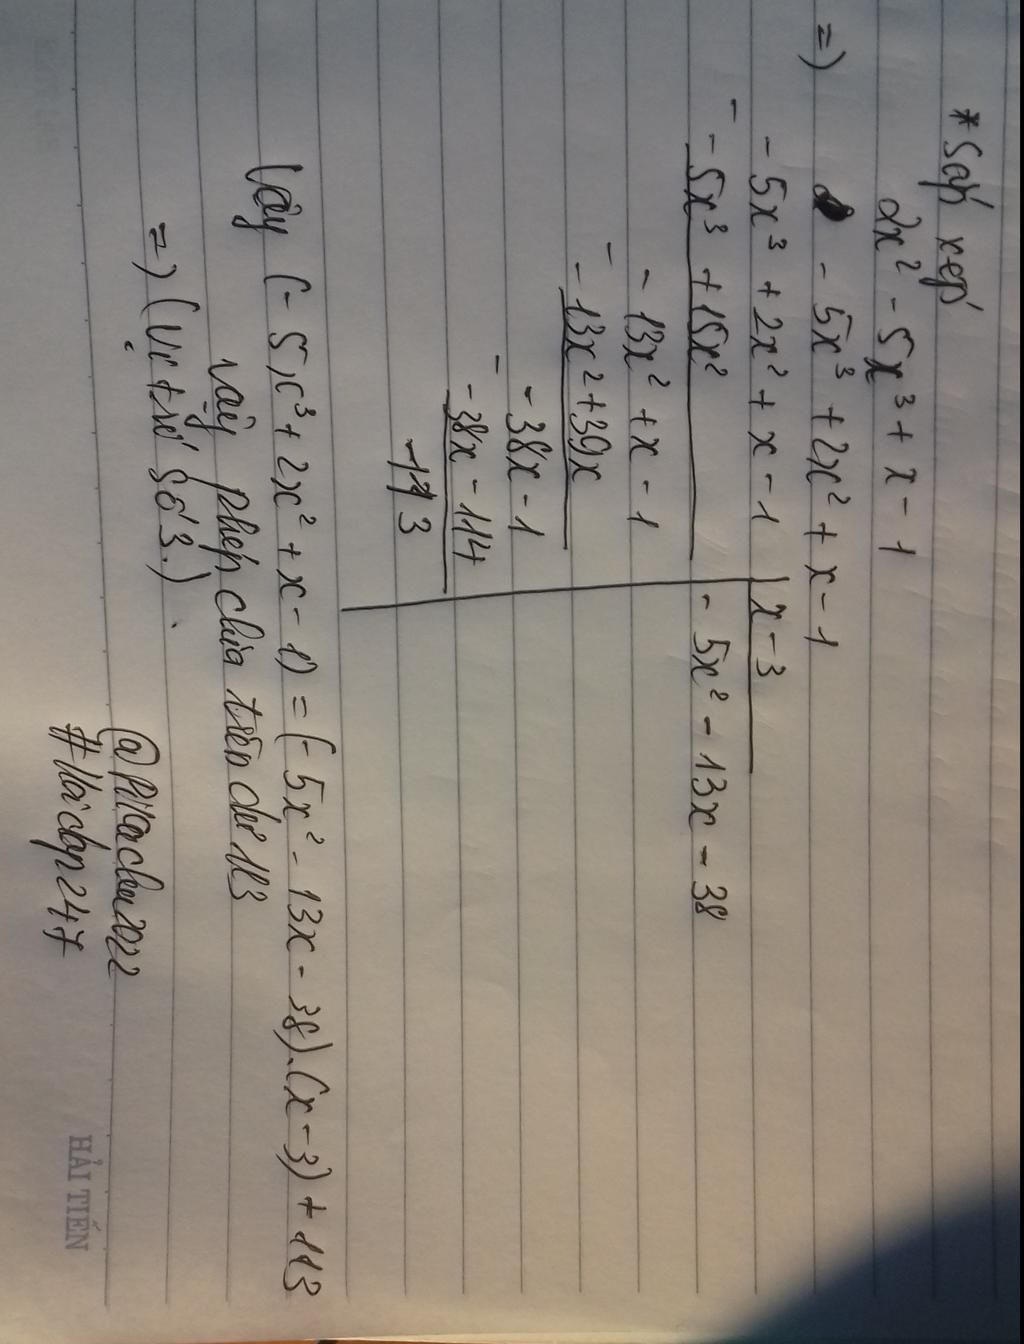 * Sắp xếp
2x² - 5x³ + x - 1
=) - 5x³ + 2x² + x - 1
- 5x³ + 2x² + x - 1 | x - 3
- - 5x³ + 15x² - 5x² - 13x - 38
- 13x² + x - 1
- - 13x² + 39x
- 38x - 1
- - 38x - 114
- 113
Vậy (- 5x³ + 2x² + x - 1) = (- 5x² - 13x - 38).(x - 3) + 113
vậy phép chia trên dư 113
=) (Vị trí số 3.)
@Pikachu2022
#Hoidap247
HẢI TIẾN